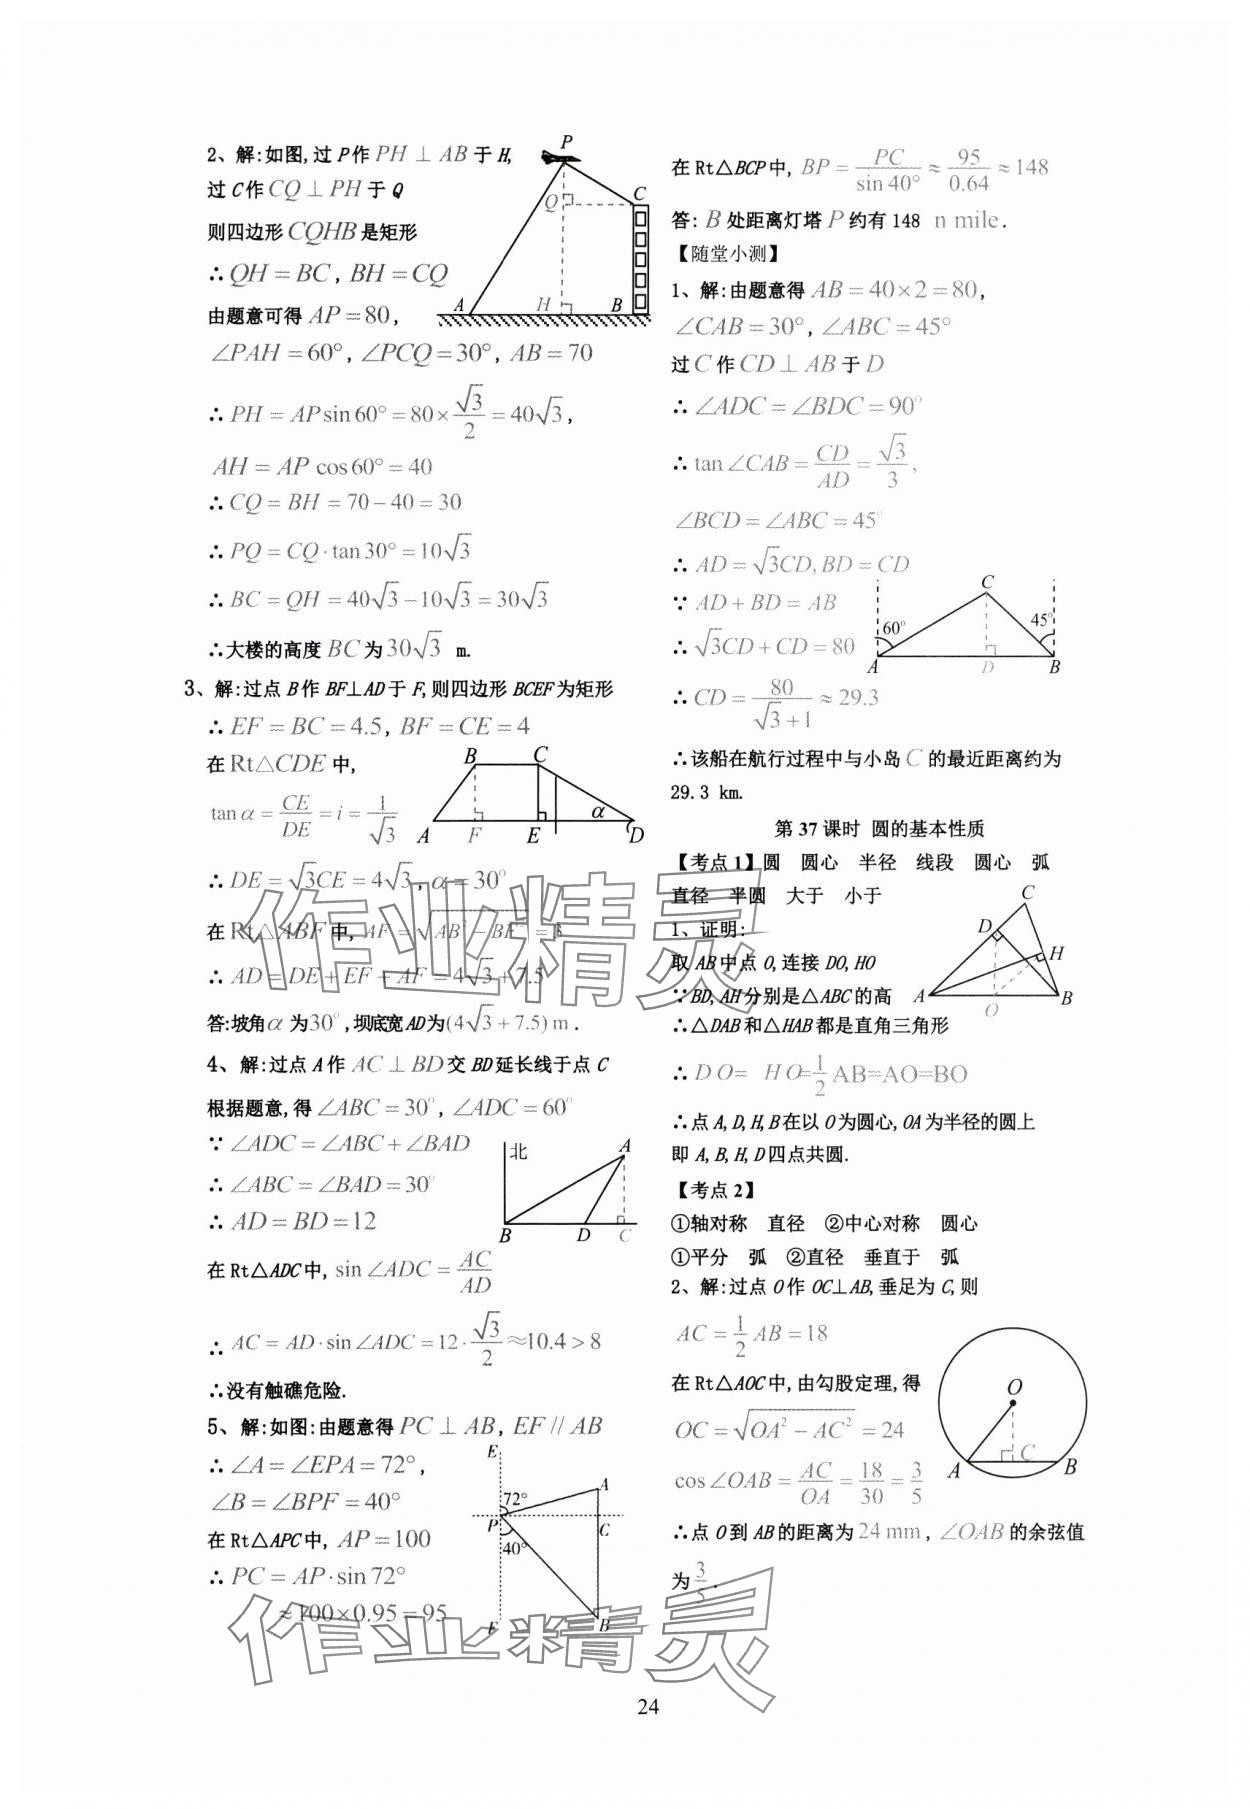 2、解:如图,过 P作 PH ⊥ AB 于 H,
过 C作 CQ ⊥ PH 于 Q
则四边形 CQHB 是矩形
∴ QH = BC , BH = CQ
由题意可得 AP = 80 ,
∠PAH = 60° , ∠PCQ = 30° , AB = 70
∴ PH = AP sin 60° = 80 × √3/2 = 40√3 ,
AH = AP cos 60° = 40
∴ CQ = BH = 70 − 40 = 30
∴ PQ = CQ · tan 30° = 10√3
∴ BC = QH = 40√3 − 10√3 = 30√3
∴大楼的高度 BC 为 30√3 m.
P
Q
C
A
H
B
3、解:过点 B作 BF⊥AD 于 F,则四边形 BCEF 为矩形
∴ EF = BC = 4.5, BF = CE = 4
在 Rt△CDE 中,
tan α = CE/DE = i = 1/√3
B
C
A
F
E
α
D
∴ DE = √3CE = 4√3 , α = 30°
在 Rt△ABF 中, AF = √AB² − BF² = 
∴ AD = DE + EF + AF = 4√3 + 7.5
答:坡角 α 为 30° , 坝底宽 AD为 (4√3 + 7.5) m .
4、解:过点 A作 AC ⊥ BD 交 BD延长线于点 C
根据题意,得 ∠ABC = 30° , ∠ADC = 60°
∵ ∠ADC = ∠ABC + ∠BAD
∴ ∠ABC = ∠BAD = 30°
∴ AD = BD = 12
北
A
B
D
C
在 Rt△ADC 中, sin ∠ADC = AC/AD
∴ AC = AD · sin ∠ADC = 12 · √3/2 ≈10.4 > 8
∴没有触礁危险.
5、解:如图:由题意得 PC ⊥ AB , EF // AB
∴ ∠A = ∠EPA = 72° ,
∠B = ∠BPF = 40°
在 Rt△APC 中, AP = 100
∴ PC = AP · sin 72°
≈ 100 × 0.95 = 95
E
A
72°
P
C
40°
F
B
在 Rt△BCP 中, BP = PC/sin 40° ≈ 95/0.64 ≈ 148
答: B 处距离灯塔 P 约有 148 n mile .
【随堂小测】
1、解:由题意得 AB = 40 × 2 = 80 ,
∠CAB = 30° , ∠ABC = 45°
过 C 作 CD ⊥ AB 于 D
∴ ∠ADC = ∠BDC = 90°
∴ tan ∠CAB = CD/AD = √3/3 ,
∠BCD = ∠ABC = 45°
∴ AD = √3CD, BD = CD
∵ AD + BD = AB
∴ √3CD + CD = 80
∴ CD = 80/√3 + 1 ≈ 29.3
C
60°
45°
A
D
B
∴该船在航行过程中与小岛 C 的最近距离约为
29.3 km.
第 37 课时 圆的基本性质
【考点 1】圆 圆心 半径 线段 圆心 弧
直径 半圆 大于 小于
1、证明:
取 AB 中点 O, 连接 DO, HO
∵ BD, AH 分别是△ABC 的高
∴ △DAB 和△HAB 都是直角三角形
∴ D O= H O=1/2 AB=AO=BO
C
D
H
A
O
B
∴点 A, D, H, B 在以 O 为圆心, OA 为半径的圆上
即 A, B, H, D 四点共圆.
【考点 2】
①轴对称 直径 ②中心对称 圆心
①平分 弧 ②直径 垂直于 弧
2、解:过点 O 作 OC⊥AB, 垂足为 C, 则
AC = 1/2 AB = 18
在 Rt△AOC 中, 由勾股定理, 得
OC = √OA² − AC² = 24
cos ∠OAB = AC/OA = 18/30 = 3/5
O
A
C
B
∴点 O 到 AB 的距离为 24 mm , ∠OAB 的余弦值
为 3/5 .
作业精灵
作业精灵
24